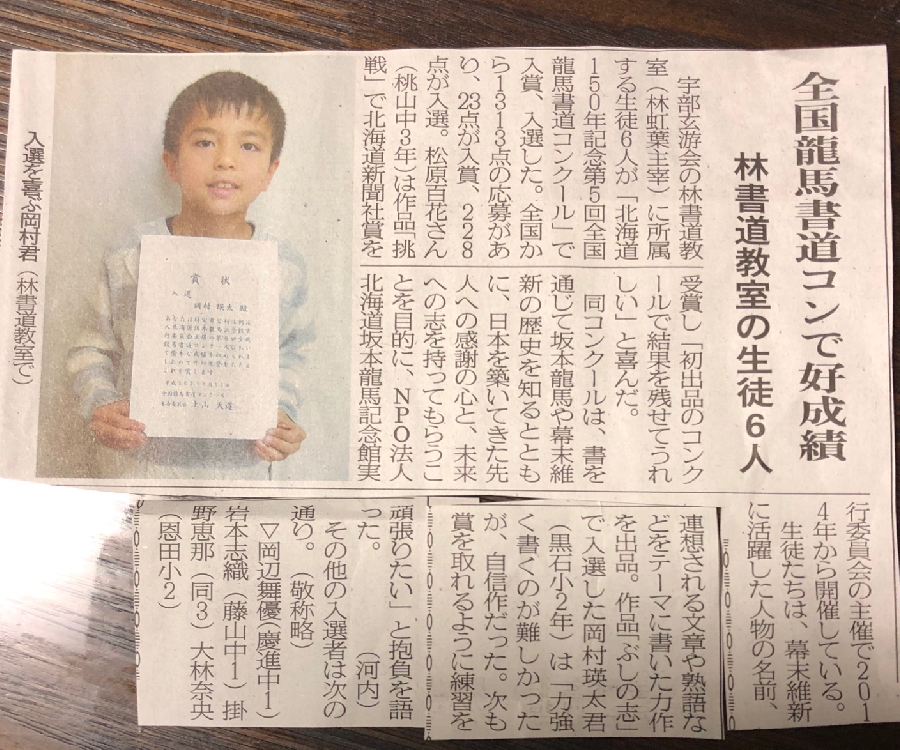 全国龍馬書道コンで好成績
林書道教室の生徒6人
宇部玄游会の林書道教
室（林虹葉主宰）に所属
する生徒6人が「北海道
150年記念第5回全国
龍馬書道コンクール」で
入賞、入選した。全国か
ら1313点の応募があ
り、23点が入賞、228
点が入選。松原百花さん
（桃山中3年）は作品「挑
戦」で北海道新聞社賞を
受賞し「初出品のコンク
ールで結果を残せてうれ
しい」と喜んだ。
同コンクールは、書を
通じて坂本龍馬や幕末維
新の歴史を知るととも
に、日本を築いてきた先
人への感謝の心と、未来
への志を持ってもらうこ
とを目的に、NPO法人
北海道坂本龍馬記念館実
行委員会の主催で201
4年から開催している。
生徒たちは、幕末維新
に活躍した人物の名前、
連想される文章や熟語な
どをテーマに書いた力作
を出品。作品「ぶしの志」
で入選した岡村瑛太君
（黒石小2年）は「力強
く書くのが難しかった
が、自信作だった。次も
賞を取れるように練習を
頑張りたい」と抱負を語
った。（河内）
その他の入選者は次の
通り。（敬称略）
▽岡辺舞優（慶進中1）
岩本志織（藤山中1）掛
野恵那（同3）大林奈央
（恩田小2）
入選を喜ぶ岡村君（林書道教室で）
賞状
入選
岡村瑛太殿